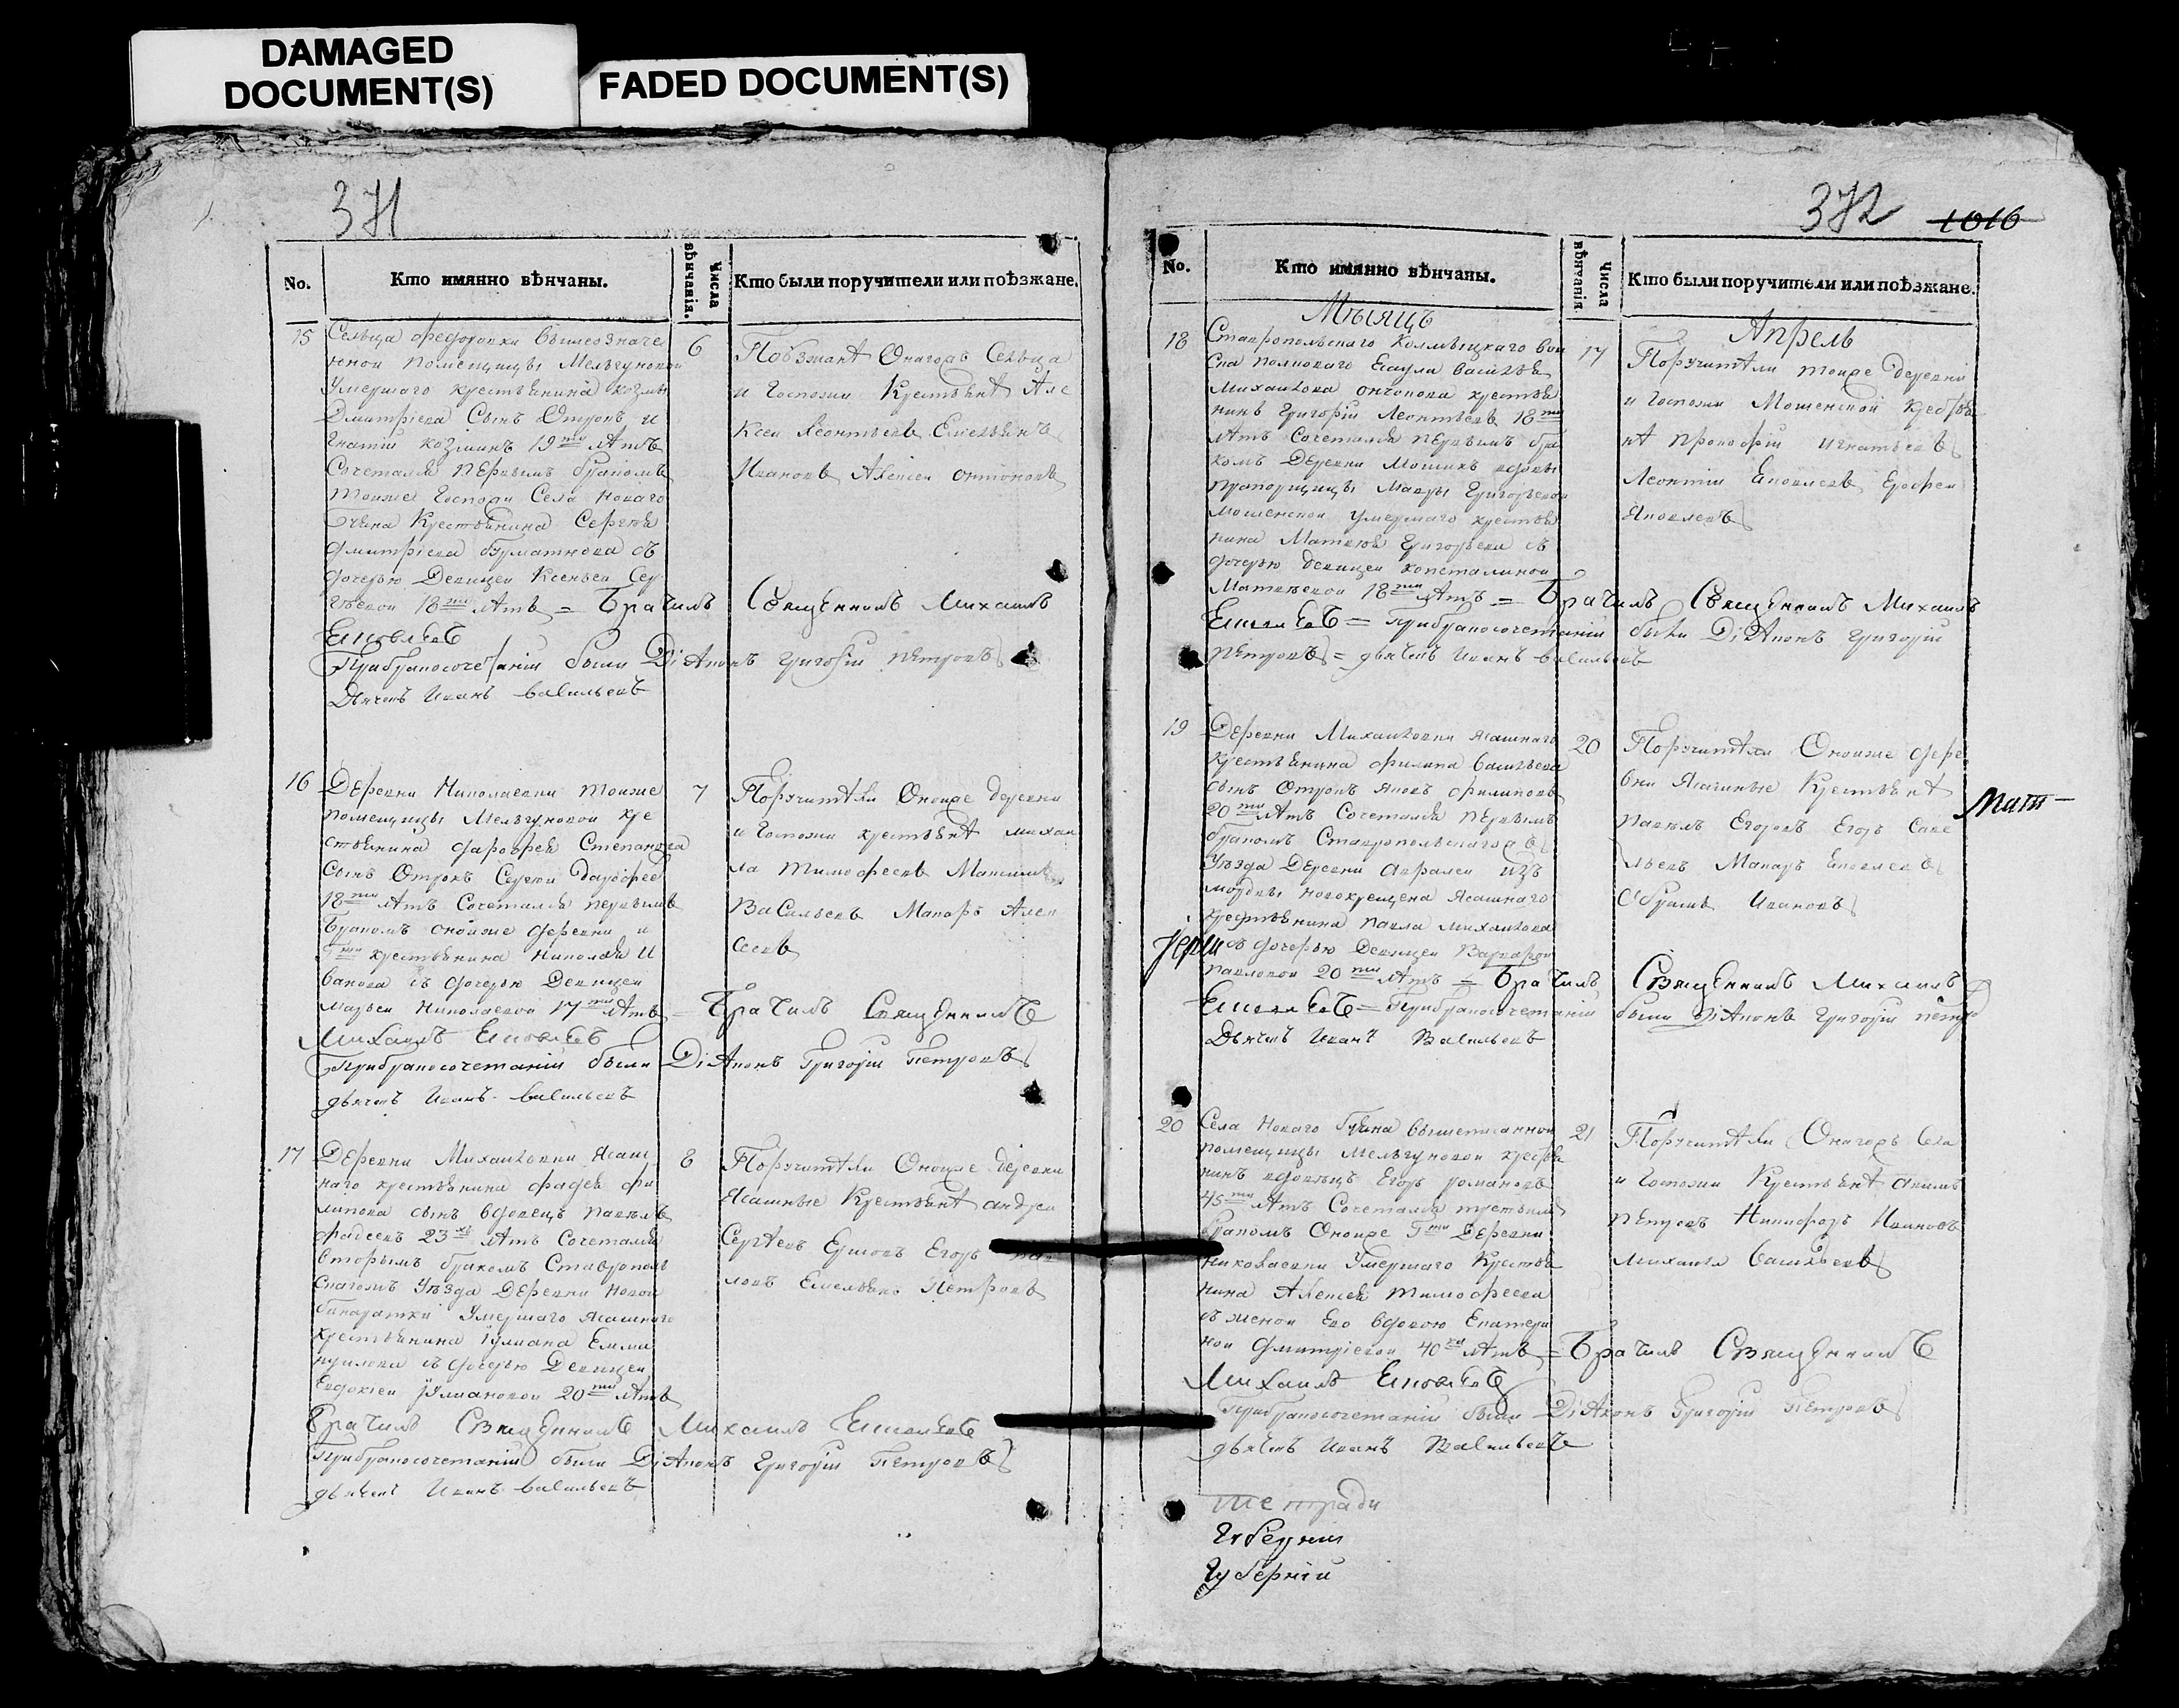 DAMAGED
DOCUMENT(S)
FADED DOCUMENT(S)
371
No.
Кто имянно вѣнчаны.
Числа вѣнчанія.
Кто были поручители или поѣзжане.
15
Сельца Федоровки вышеозначе
нной помещицы Мельгуновой
Умершаго крестьянина Козмы
Дмитріева Сынъ Отрокъ И
гнатій Козминъ 19ти лѣтъ
Сочетался первымъ бракомъ
тоиже Госпожи Села Новаго
крестьянина Сергѣя
Дмитріева съ
дочерью Девицеи Ксеньеи Сер
гѣевои 18ти лѣтъ = Брачилъ Священникъ Михаилъ
Яковлевъ
При бракосочетаніи были Діяконъ Григоріи Петровъ
Дьячекъ Иванъ Васильевъ
6
Поѣзжанѣ Онагожъ Сельца
и Госпожи Крестьянѣ Але
ксеи Леонтьевъ Емельянъ
Ивановъ Алексеи Онтоновъ
16
Деревни Николаевки тоиже
помещицы Мельгуновои кре
стьянина Дарофея Степанова
Сынъ Отрокъ Сергеи Дарофее
18ти лѣтъ Сочетался первымъ
бракомъ оноиже деревни и
Гжи крестьянина Николая И
ванова съ дочерью Девицеи
Марьеи Николаевои 17ти лѣтъ = Брачилъ Священникъ
Михаилъ Яковлевъ
При бракосочетаніи были Діяконъ Григоріи Петровъ
дьячекъ Иванъ Васильевъ
7
Поручители Оноиже деревни
и Госпожи крестьянѣ Михаи
ла Тимофеевъ Максимъ
Васильевъ Макаръ Алек
сеевъ
17
Деревни Михаиловки Ясаш
наго крестьянина Фадея Фи
липова сынъ вдовецъ Павелъ
Фадеевъ 23хъ лѣтъ Сочетался
вторымъ бракомъ Ставрополь
скагожъ Уѣзда Деревни Новои
Умершаго Ясашнаго
крестьянина Иулиана Емма
нуилова съ дочерью Девицеи
Евдокіеи Иулиановои 20ти лѣтъ
Брачилъ Священникъ Михаилъ Яковлевъ
При бракосочетаніи были Діяконъ Григоріи Петровъ
дьячекъ Иванъ Васильевъ
8
Поручители Оноиже деревни
Ясашные Крестьянѣ Андреи
Сергѣевъ Егоръ
Емельянъ Петровъ
372
1016
No.
Кто имянно вѣнчаны.
Числа вѣнчанія
Кто были поручители или поѣзжане.
Мѣсяцъ
Апрель
18
Ставропольскаго Коллмыцкаго вои
ска полковаго Есаула Василья
Михаилова крестья
нинъ Григоріи Леонтьевъ 18ти
лѣтъ Сочетался первымъ бра
комъ Деревни Мошинъ вдовы
прапорщицы Мавры Григорьевои
Мошенскои умершаго крестья
нина Матвѣя Григорьева съ
дочерью девицеи Констатинои
Матвѣевои 18ти лѣтъ = Брачилъ Священникъ Михаилъ
Яковлевъ = При бракосочетаніи были Діяконъ Григоріи
Петровъ = дьячекъ Иванъ Васильевъ
17
Поручители тоиже деревни
и Госпожи Мошенскои кресья
нѣ Прокофіи Игнатьевъ
Леонтіи Яковлевъ Ерофеи
Яковлевъ
19
Деревни Михаиловки Ясашнаго
крестьянина Филипа Васильева
сынъ Отрокъ Яковъ Филиповъ
20ти лѣтъ Сочетался первымъ
бракомъ Ставропольскагожъ
Уѣзда Деревни изъ
мордвы новокрещена Ясашнаго
крестьянина Павла Михаилова
съ дочерью Девицеи Варварои
Павловои 20ти лѣтъ = Брачилъ Священникъ Михаилъ
Яковлевъ = При бракосочетаніи были Діяконъ Григоріи Петро
Дьячекъ Иванъ Васильевъ
20
Поручители Оноиже дере
вни Ясашные Крестьянѣ
Павелъ Егоровъ Егоръ Саве
льевъ Макаръ Яковлевъ
Абрамъ Ивановъ
20
Села Новаго вышеписаннои
помещицы Мельгуновои крестья
нинъ вдовецъ Егоръ Романовъ
45ти лѣтъ Сочетался третьимъ
бракомъ Оноиже Гжи Деревни
Николаевки Умершаго Крестья
нина Алексея Тимофеева
съ женои Ево вдовою Екатери
нои Дмитріевои 40ка лѣтъ = Брачилъ Священникъ
Михаилъ Яковлевъ
При бракосочетаніи были Діяконъ Григоріи Петровъ
дьячекъ Иванъ Васильевъ
21
Поручители Онагожъ Села
и Госпожи Крестьянѣ Акимъ
Петровъ Никифоръ Ивановъ
Михаила Васильевъ
тетради
Губерніи